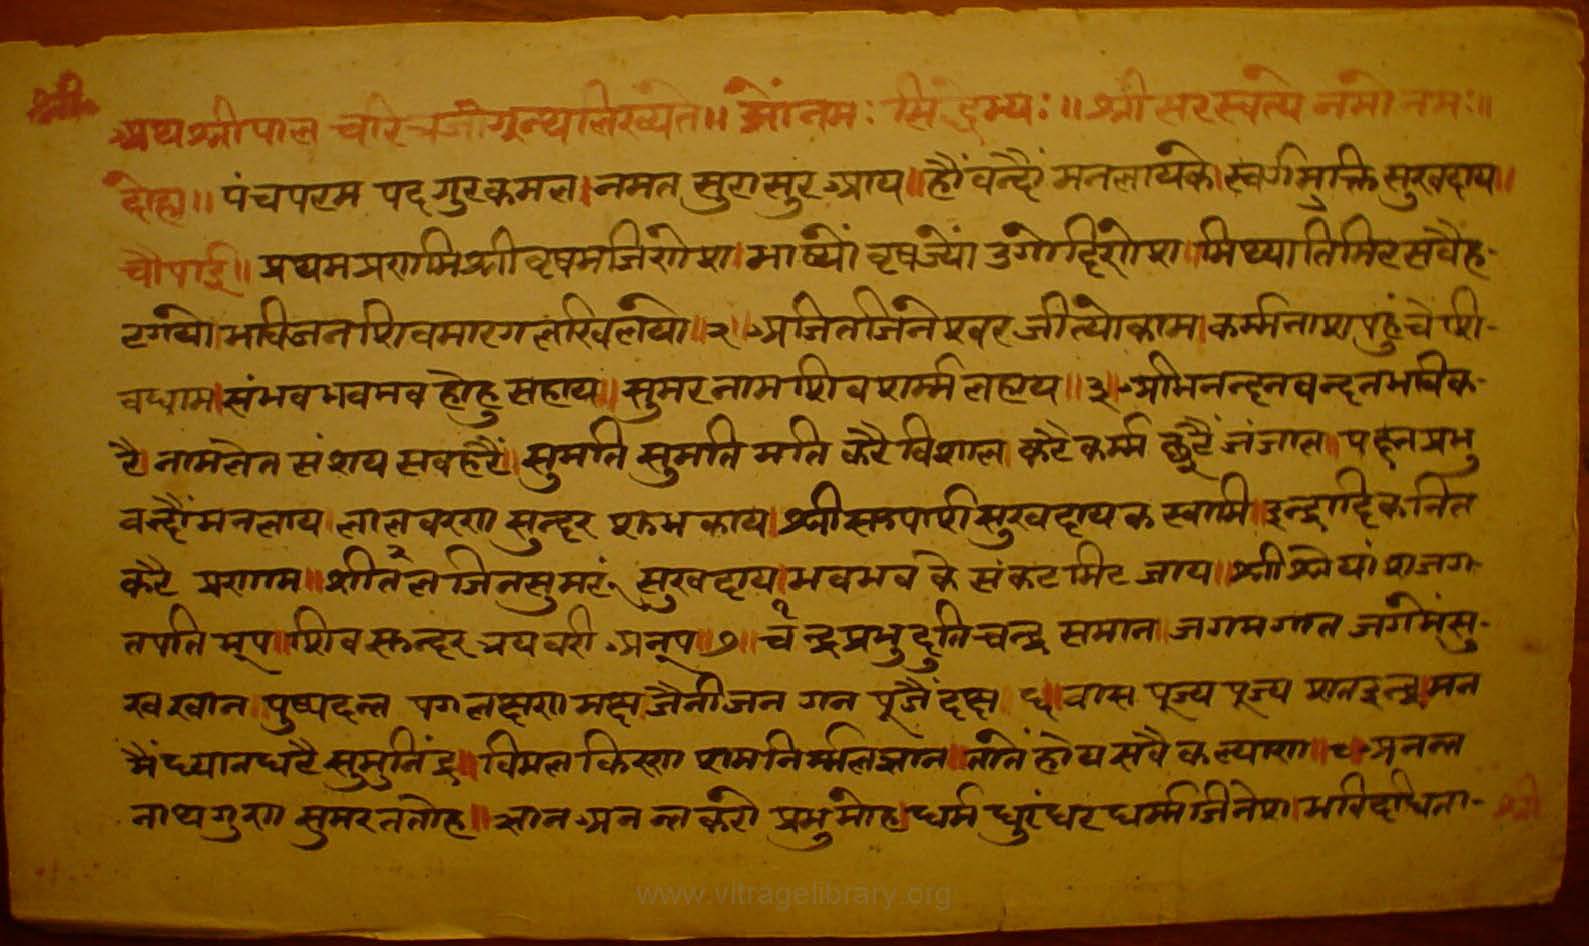 श्री
अथ श्रीपाल चरित्रजी ग्रन्थ लिख्यते॥ ओं नमः सिद्धेभ्यः॥ श्री सरस्वत्यै नमो नमः॥
दोहा॥ पंच परम पद गुर कमल। नमत सुरासुर आय॥ हौं वन्दौं मन लायके। स्वर्ग मुक्ति सुखदाय॥
चौपाई॥ प्रथम प्रणमि श्री वृषभ जिणेश। भाष्यो वृष ज्यों उगो दिणेश॥ मिथ्या तिमिर सवै ह-
टगयो। भविजन शिवमारग लखि लयो॥२॥ अजित जिनेश्वर जीत्यो काम। कर्म्म नाश पहुंचे शि-
वधाम। संभव भव भव होहु सहाय॥ सुमर नाम शिव शर्म्म लहाय॥३॥ अभिनन्दन वन्दन भवि क-
रै। नाम लेत संशय सव हरैं॥ सुमति सुमति मति करै विशाल। कटै कर्म्म छूटैं जंजाल॥ पद्म प्रभु
वन्दौं मन लाय। लाल वरण सुन्दर शुभ काय। श्री सुपार्श सुखदायक स्वामि। इन्द्रादिक नित
करै प्रणाम॥ शीतल जिन सुमरूं सुखदाय। भव भव के संकट मिट जाय॥ श्री श्रेयांश जग-
तपति भूप॥ शिव सुन्दर त्रय वरी अनूप॥७॥ चन्द्रप्रभु दुति चन्द्र समान। जगमगात जगमें सु-
ख खान। पुष्पदन्त पग लक्षण मक्ष। जैनी जन गन पूजैं दक्ष॥ वास पूज्य पूज्य शत इन्द्र। मन
मैं ध्यान धरै सु मुनिंद्र॥ विमल किरण शम निर्म्मल ज्ञान॥ तातें होय सवै कल्याण॥ अनन्त
नाथ गुण सुमरत तोह॥ ज्ञान अनन्त करो प्रभु मोह। धर्म धुरंधर धर्म्म जिनेश। भवि दधि ता-
श्री
www.vitragelibrary.org